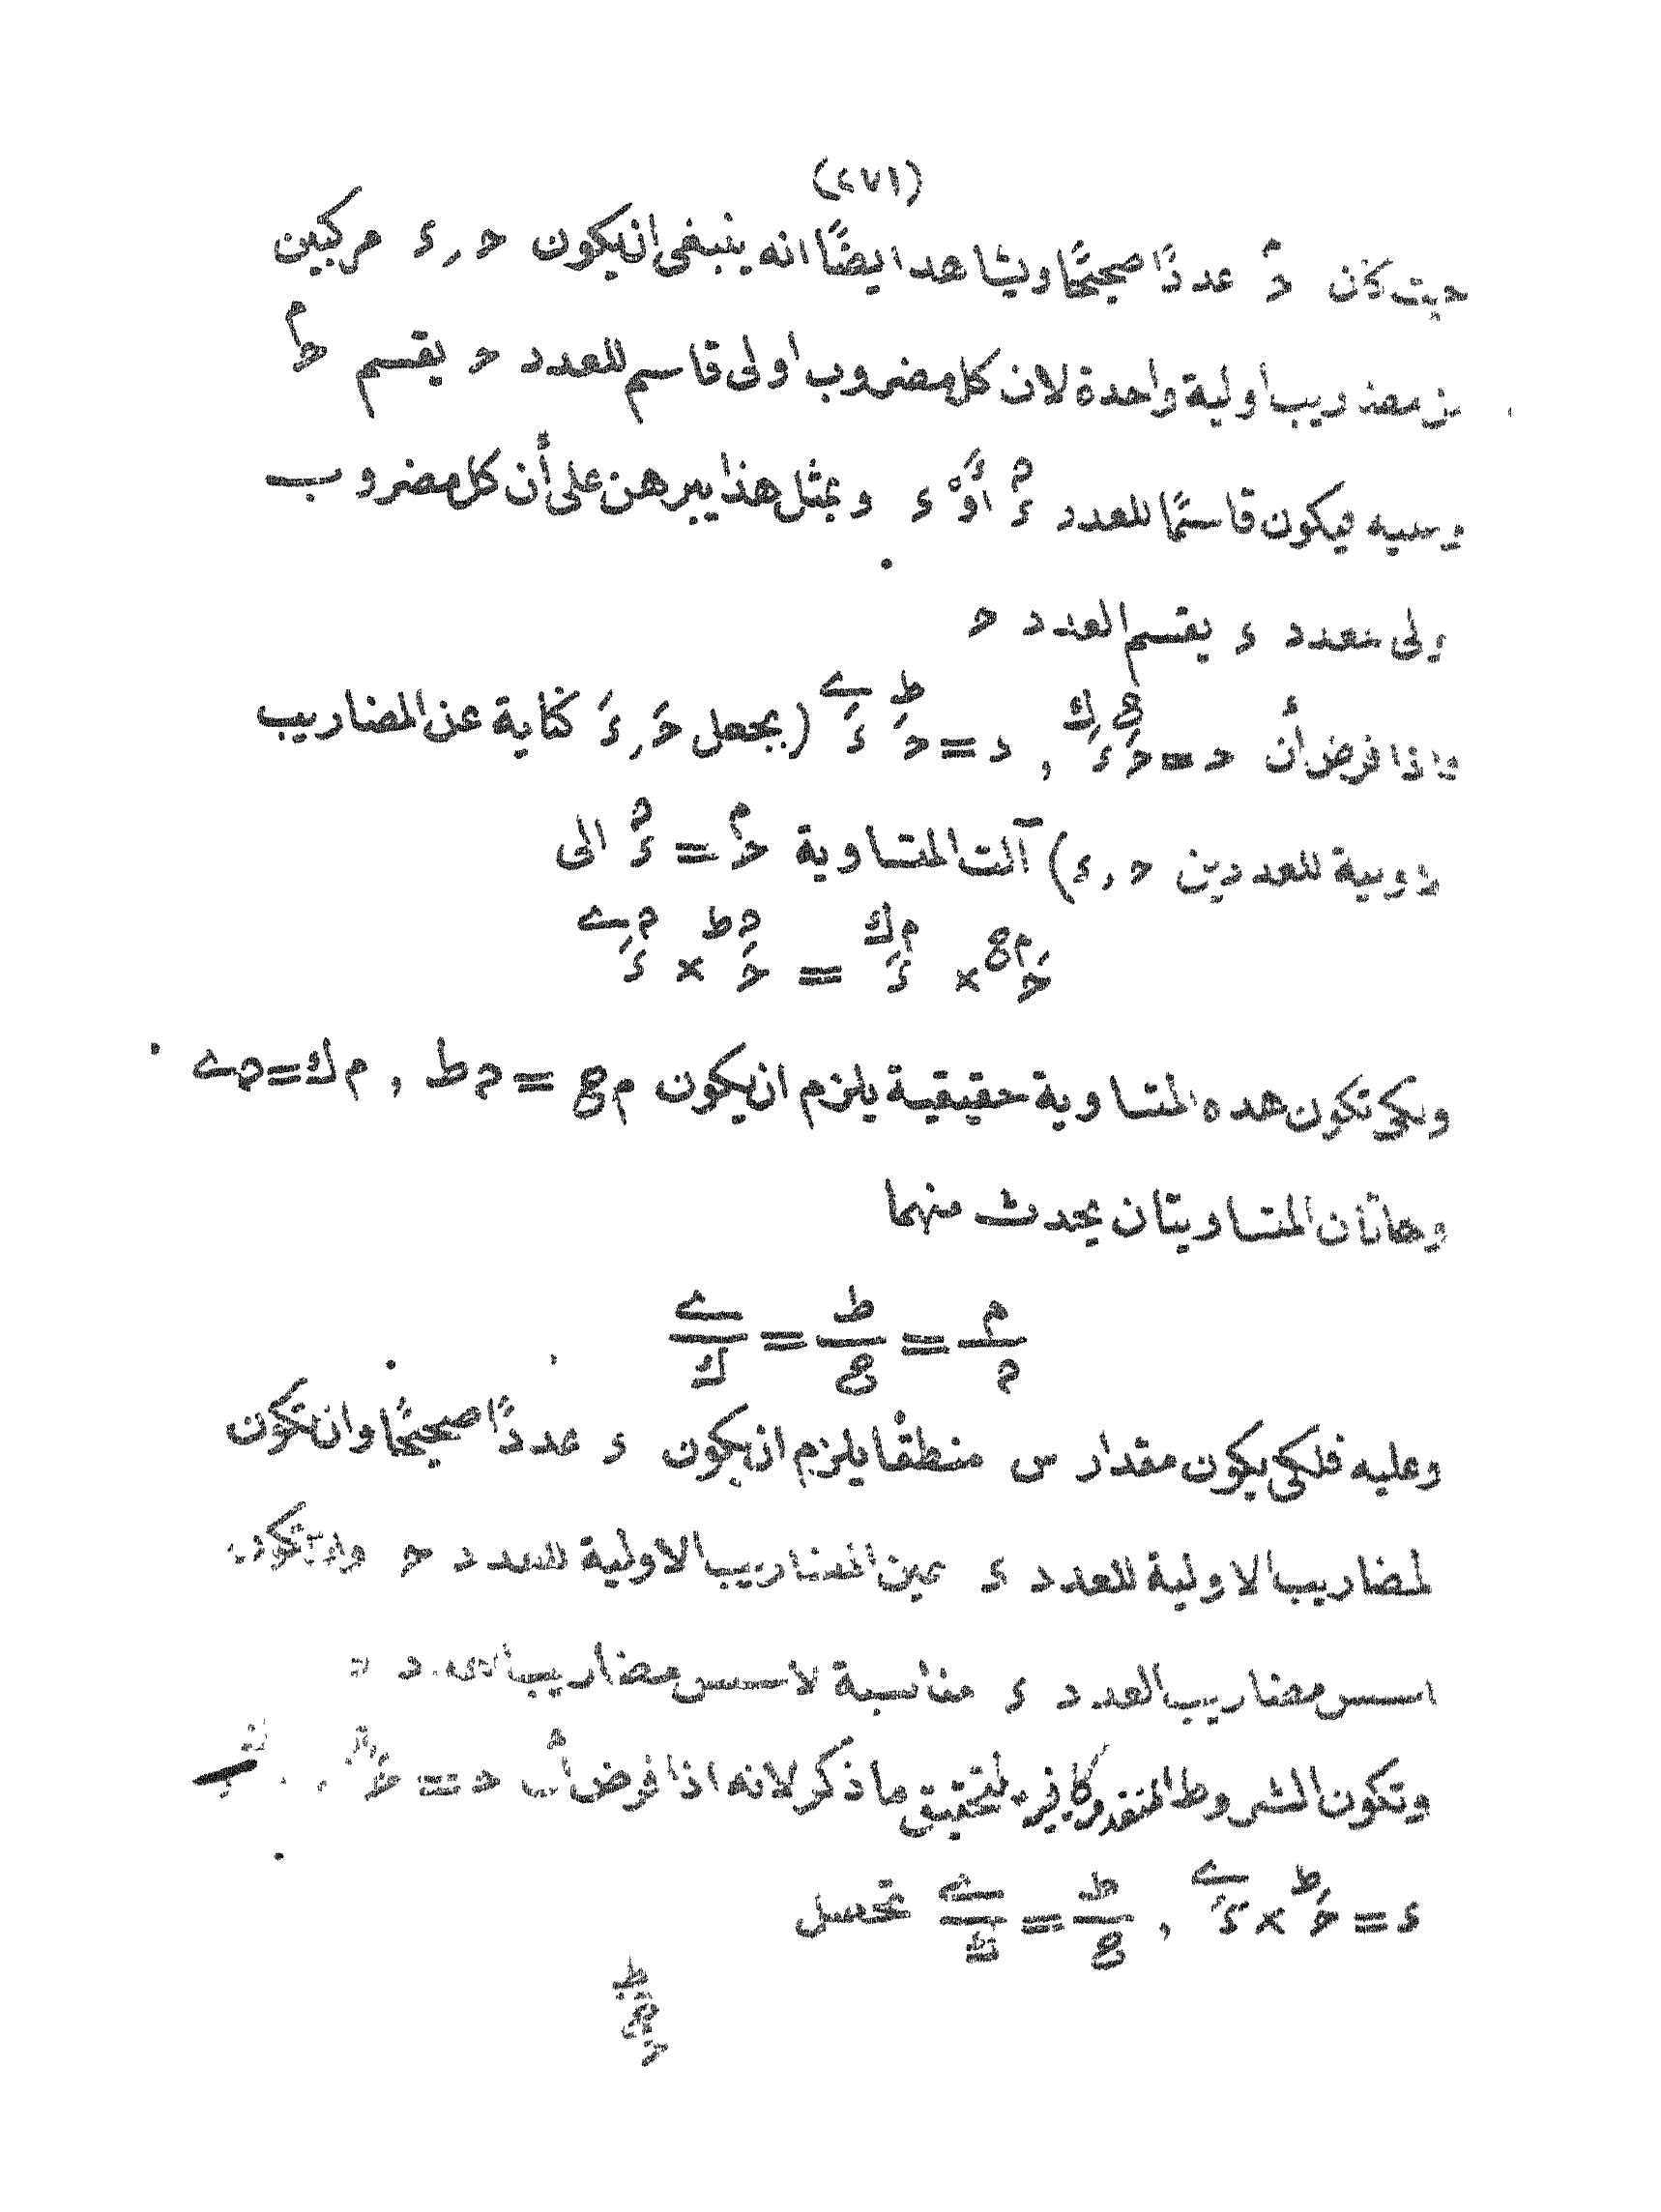 (٢٧١)
حيث كان حـ^م عددًا صحيحًا ويشاهد ايضًا انه ينبغى ان يكون حـ , ء مركبين
من مضاريب اولية واحدة لان كل مضروب اولى قاسم للعدد حـ يقسم حـ^م
وسيه فيكون قاسمًا للعدد ء^ن اوْ ء وبمثل هذا يبرهن على أن كل مضروب
ولى للعدد ء يقسم العدد حـ
واذا فرض أن حـ = حَـ^ع ءَ^ك , د = حَـ^ط ءَ^ى (بجعل حَـ , ءَ كناية عن المضاريب
لاوبية للعددين حـ , ء) آلت المتساوية حـ^م = ء^ن الى
حَـ^مع × ءَ^مك = حَـ^نط × ءَ^نى
ولكى تكون هذه المتساوية حقيقية يلزم ان يكون م ع = ن ط , م ك = ن ى
وهاتان المتساويتان يحدث منهما
م/ن = ط/ع = ى/ك
وعليه فلكى يكون مقدار س منطقًا يلزم ان يكون ء عددًا صحيحًا وان تكون
لمضاريب الاولية للعدد ء عين المضاريب الاولية للعدد حـ وان تكون
اسس مضاريب العدد ء مناسبة لاسس مضاريب
وتكون الشروط المتقدمة كافية لتحقيق ما ذكر لانه اذا فرض أن حـ =
ء = حَـ^ط × ءَ^ى , ط/ع = ى/ك تحصل